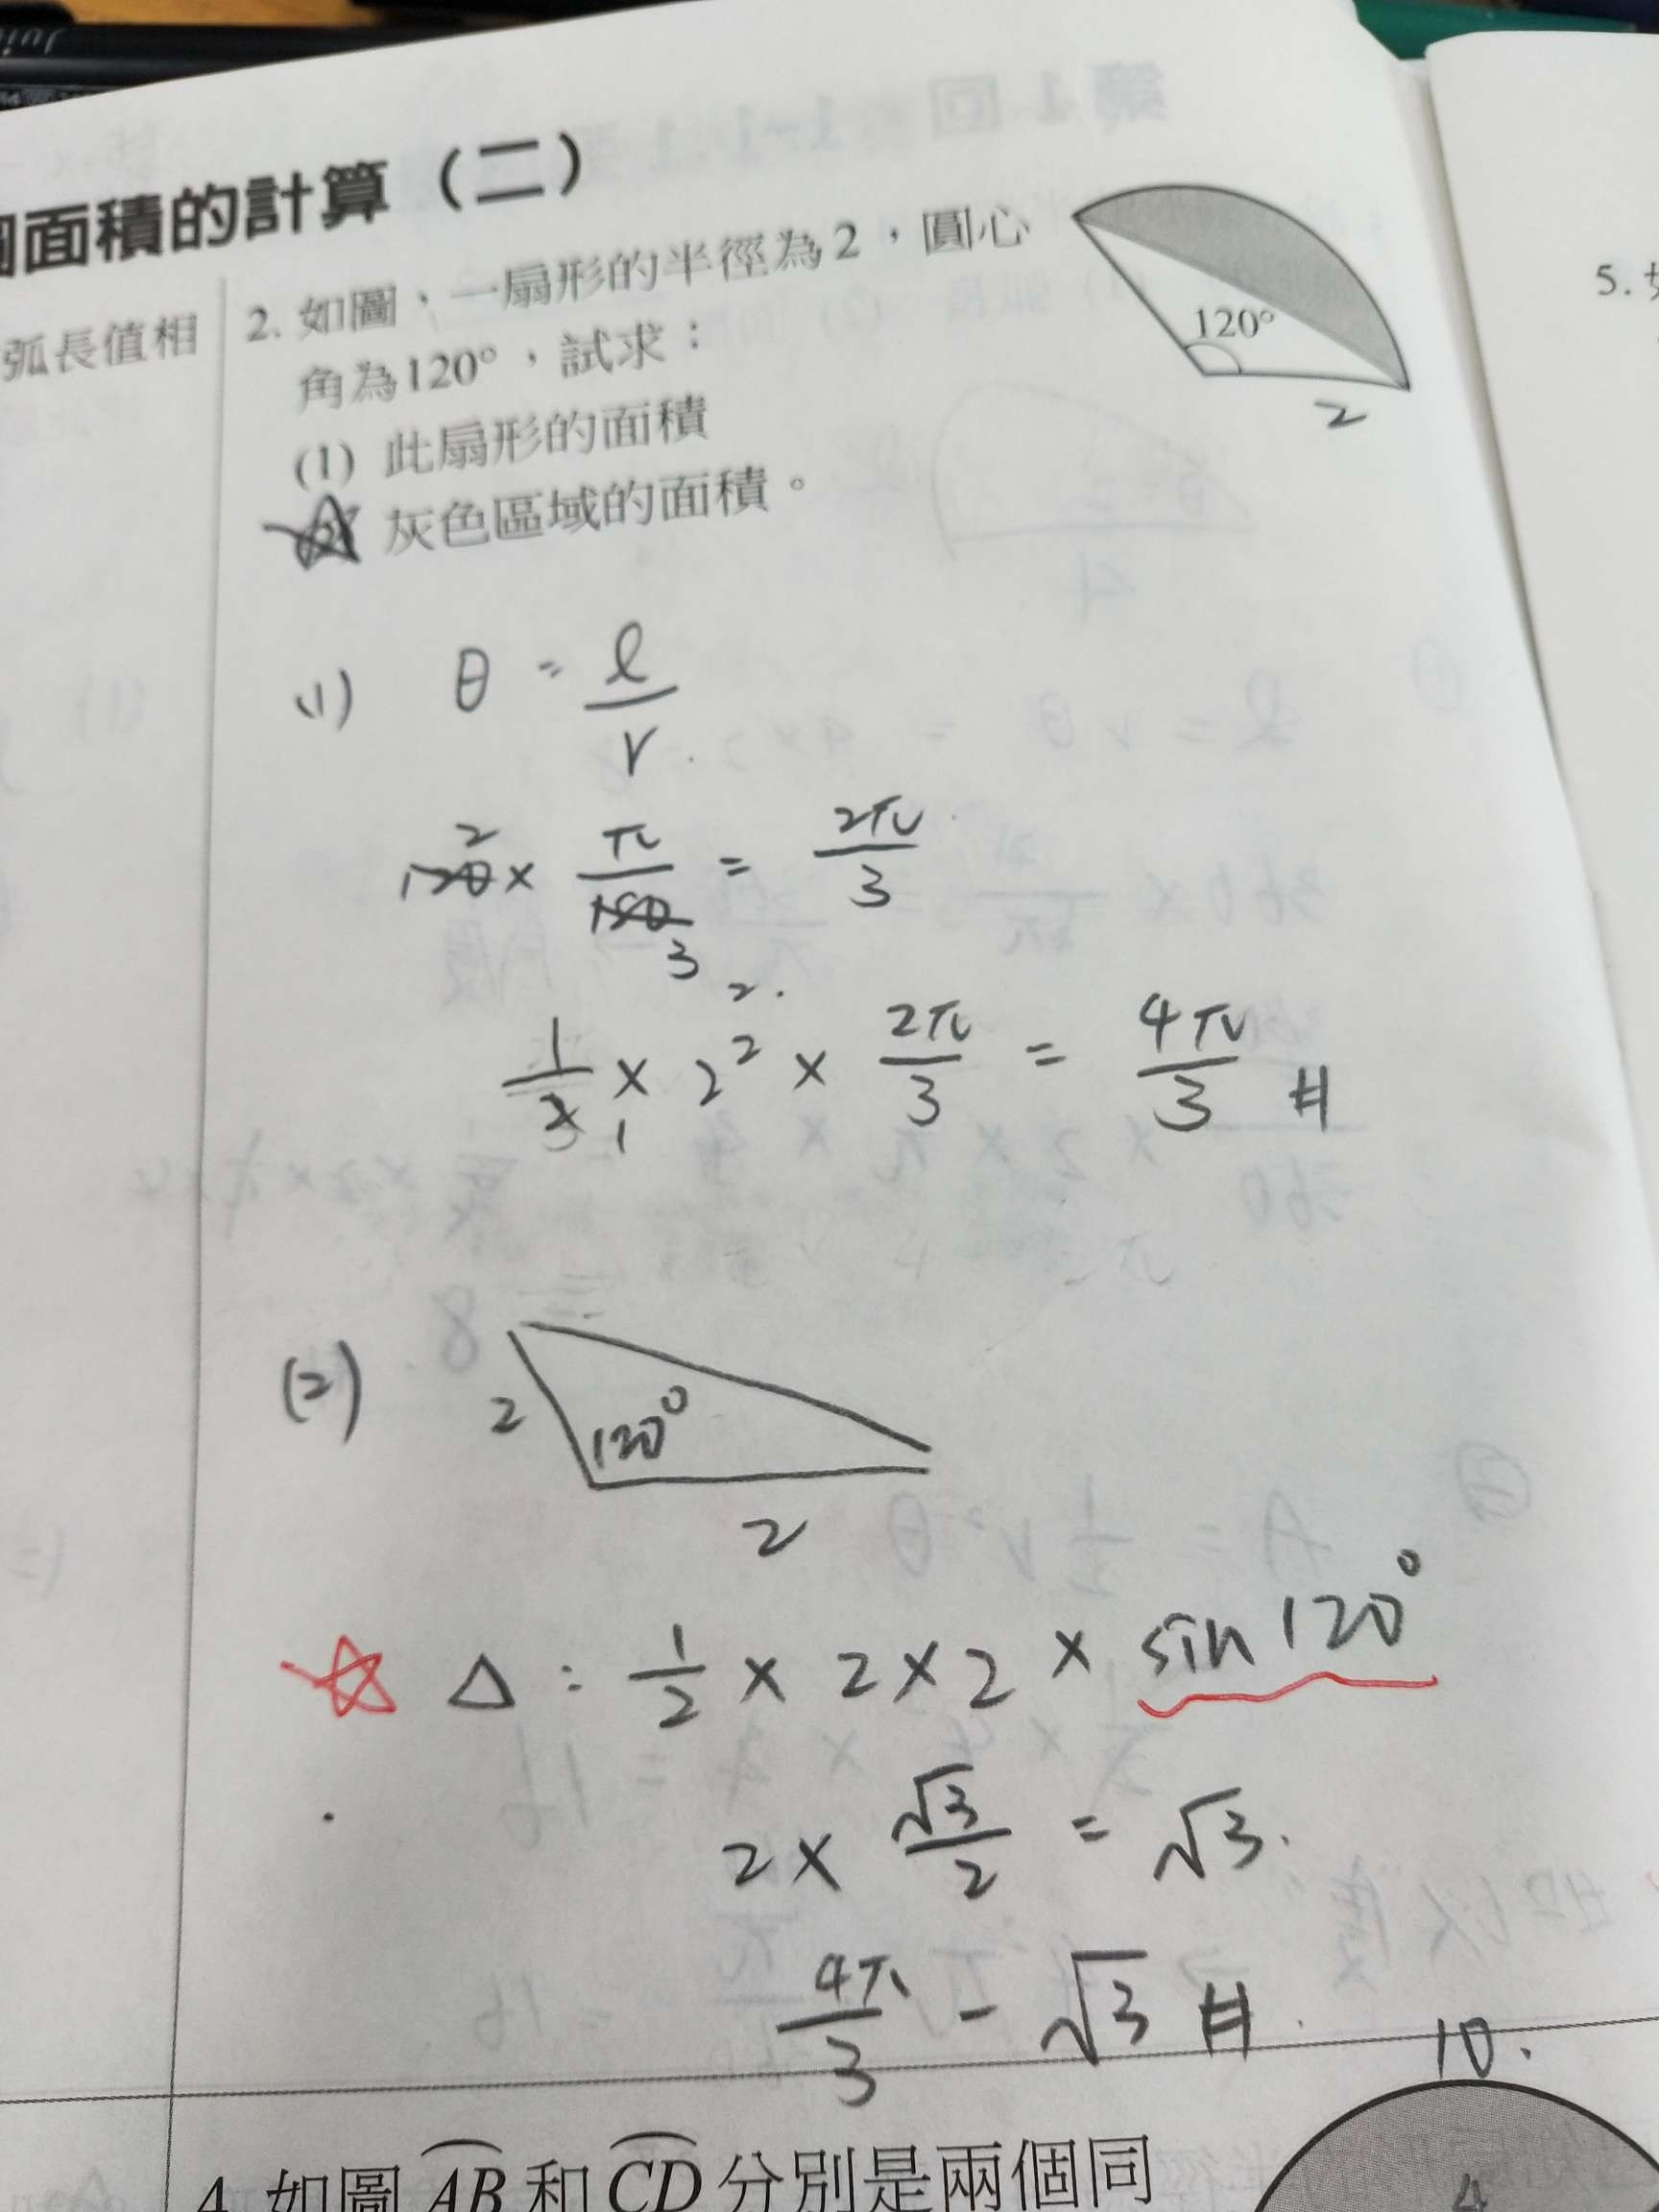 面積的計算（二）
弧長值相
2. 如圖，一扇形的半徑為2，圓心
角為120°，試求：
(1) 此扇形的面積
灰色區域的面積。
120°
2
5.
(1) θ = ℓ/r
120 × π/180 = 2π/3
2
3
2
1/2 × 2² × 2π/3 = 4π/3 #
1
(2)
2
120°
2
△ = 1/2 × 2 × 2 × sin 120°
2 × √3/2 = √3.
4π/3 - √3 #
10.
4
4. 如圖 AB 和 CD 分別是兩個同